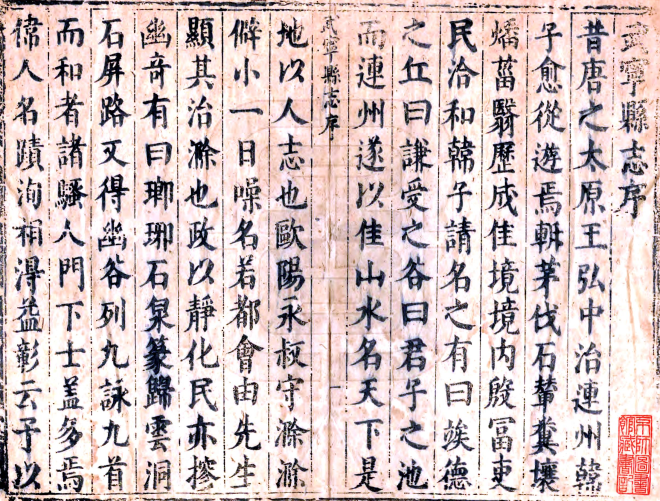 武寧縣志序
昔唐之太原王弘中治連州韓
子愈從遊焉斬茅伐石輦糞壤
燔菑翳歷成佳境境内殷富吏
民洽和韓子請名之有曰竢德
之丘曰謙受之谷曰君子之池
而連州遂以佳山水名天下是
武寧縣志序
一
地以人志也歐陽永叔守滁滁
僻小一日噪名若都會由先生
顯其治滁也政以靜化民亦搜
幽竒有曰瑯琊石泉篆歸雲洞
石屏路又得幽谷列九詠九首
而和者諸騷人門下士盖多焉
偉人名蹟洵相得益彰云予以